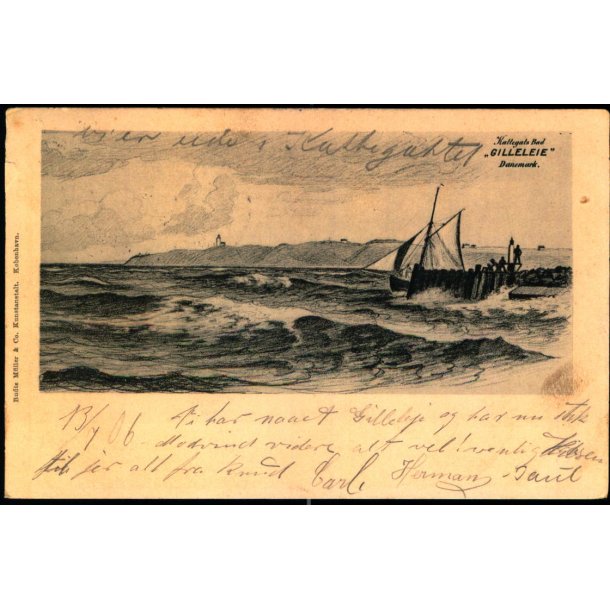 vi er ude i Kattegattet
Kattegats Bad
„GILLELEIE”
Danemark.
Budtz Müller & Co. Kunstanstalt. Kobenhavn.
13/7 06. Vi har naaet Gilleleje og har nu
Modvind videre alt vel! venlig Hilsen
til jer alt fra Knud Carl. Herman Paul